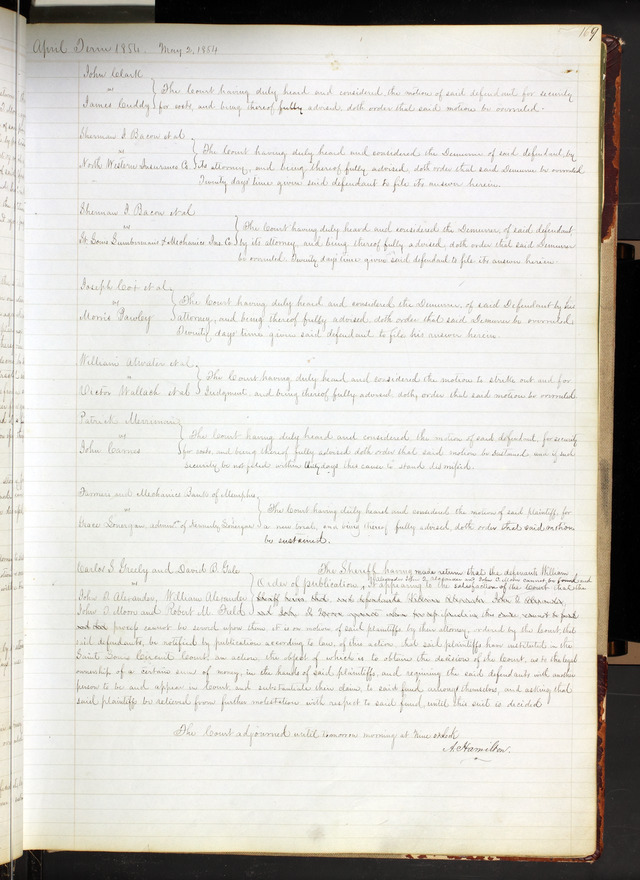 169
April Term 1854. May 2, 1854
John Clark
vs
James Cuddy
The Court having duly heard and considered the motion of said defendant for security
for costs, and being thereof fully advised, doth order that said motion be overruled.
Sherman J. Bacon et al
vs
North Western Insurance Co.
The Court having duly heard and considered the Demurrer of said defendant, by
its attorney, and being thereof fully advised, doth order that said Demurrer be overruled
Twenty days' time given said defendant to file its answer herein.
Sherman J. Bacon et al
vs
St. Louis Lumbermans & Mechanics Ins. Co.
The Court having duly heard and considered the Demurrer of said defendant
by its attorney, and being thereof fully advised, doth order that said Demurrer
be overruled. Twenty days time given said defendant to file its answer herein.
Joseph Cox et al
vs
Morris Pawley
The Court having duly heard and considered the Demurrer of said Defendant by his
attorney, and being thereof fully advised, doth order that said Demurrer be overruled
Twenty days time given said defendant to file his answer herein.
William Atwater et al
vs
Victor Wallach et al
The Court having duly heard and considered the motion to strike out and for
Judgment, and being thereof fully advised, doth order that said motion be overruled.
Patrick
vs
John Carnes
The Court having duly heard and considered the motion of said defendant, for security
for costs, and being thereof fully advised doth order that said motion be sustained, and if such
security be not filed within days, this cause to stand dismissed.
Farmers and Mechanics Bank of Memphis
vs
Grace Lonergan, admx. of Lonergan
The Court having duly heard and considered the motion of said plaintiff, for
a new trial, and being thereof fully advised, doth order that said motion
be sustained.
Carlos S. Greely and David B. Gale
vs
John D. Alexander, William Alexander
John O. Moore and Robert M. Field
Order of publication.
The Sheriff having made return that the defendants William
Alexander John D. Alexander and John O. Moore cannot be found and
it appearing to the satisfaction of the Court that the
process cannot be served upon them, it is on motion of said plaintiffs by their attorney, ordered by the Court, that
said defendants, be notified by publication according to law, of this action, that said plaintiffs have instituted in the
Saint Louis Circuit Court, an action, the object of which is to obtain the decision of the Court, as to the legal
ownership of a certain sum of money, in the hands of said plaintiffs, and requiring the said defendants with another
person to be and appear in Court, and substantiate their claims, to said fund, amongst themselves, and asking that
said plaintiffs be relieved from further molestation with respect to said fund, until this suit is decided
The Court adjourned until tomorrow morning at nine o'clock
A. Hamilton.